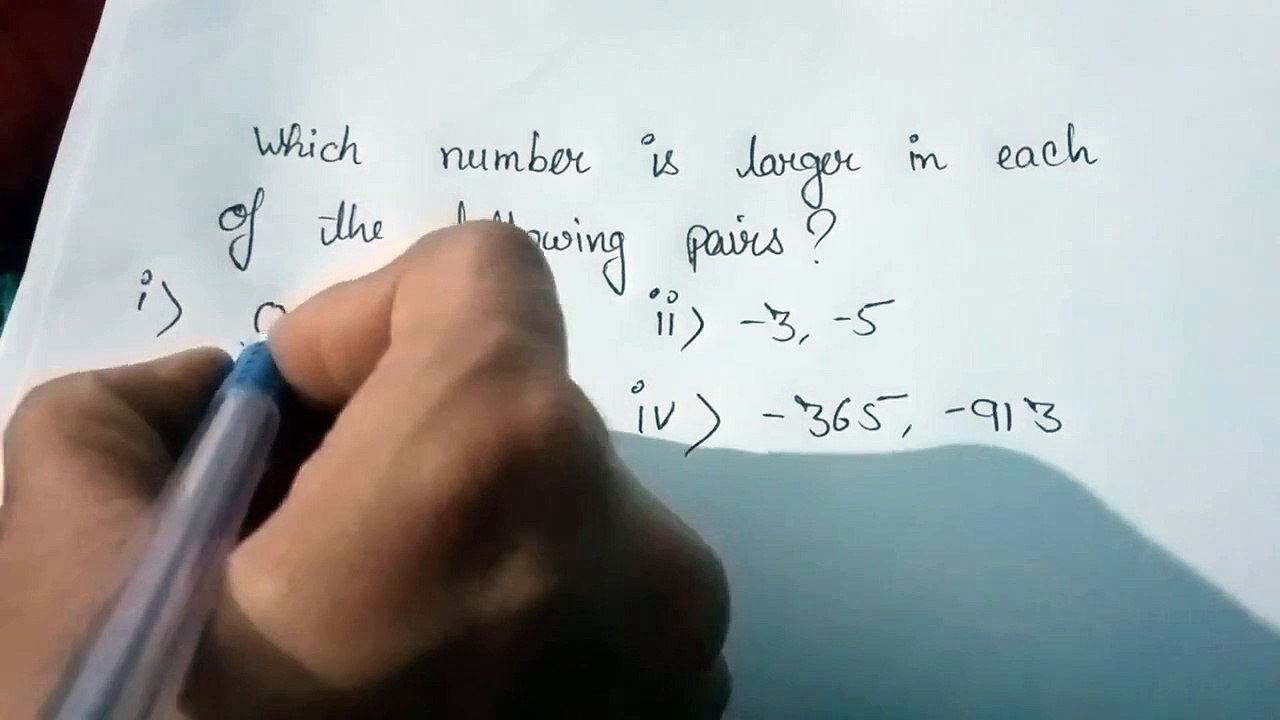 Which number is larger in each
of the wing pairs?
i) 0 ii) -3, -5
iv) -365, -913